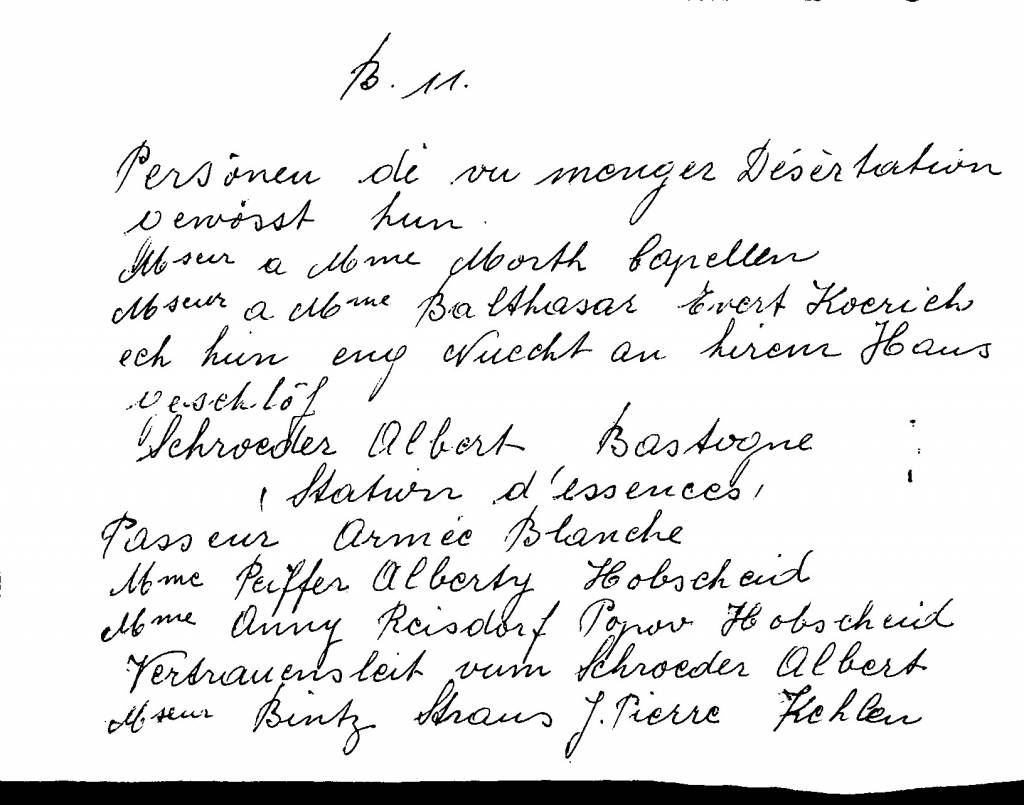 B. 11.
Persönen dé vu menger Désèrtation
vewósst hun.
Mseur a Mme Morth Capellen
Mseur a Mme Balthasar Evert Koerich
ech hun eng Nuecht an hirem Haus
veschlöf
Schroeder Albert Bastogne
(Station d'essences)
Passeur Armée Blanche
Mme Peiffer Alberty Hobscheid
Mme Anny Reisdorf Popov Hobscheid
Vertrauensleit vum Schroeder Albert
Mseur Bintz Straus J. Pierre Kehlen